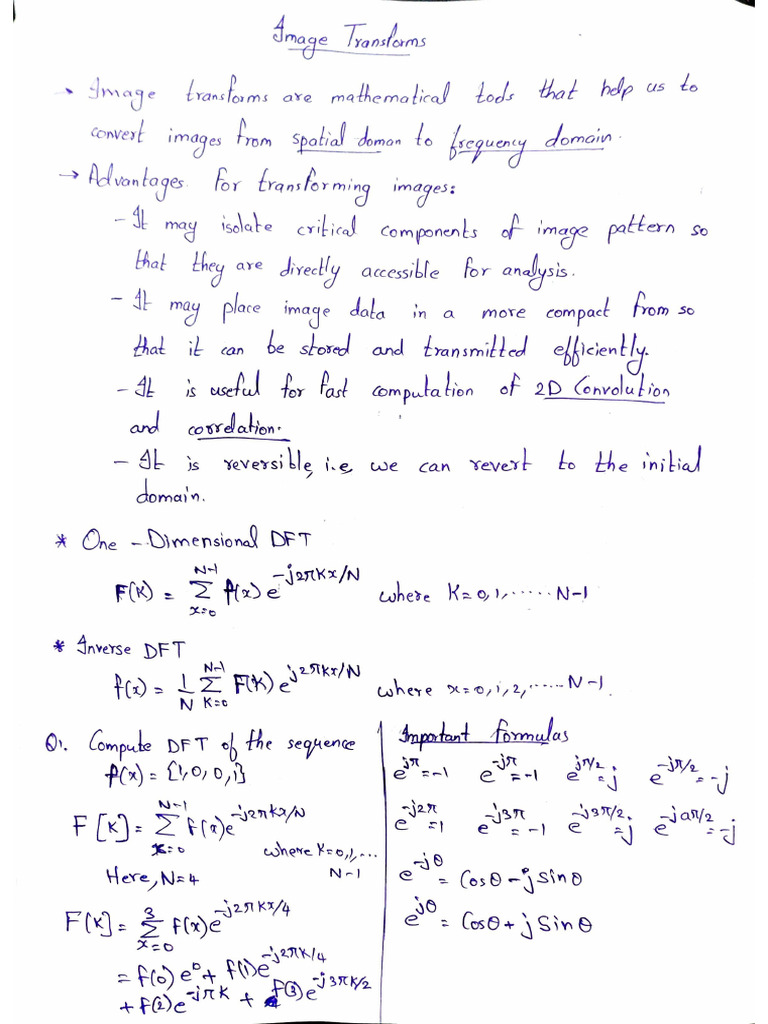 Image Transforms
→ Image transforms are mathematical tools that help us to
convert images from spatial doman to frequency domain.
→ Advantages for transforming images:
- It may isolate critical components of image pattern so
that they are directly accessible for analysis.
- It may place image data in a more compact from so
that it can be stored and transmitted efficiently.
- It is useful for fast computation of 2D Convolution
and correlation.
- It is reversible, i.e, we can revert to the initial
domain.
* One - Dimensional DFT
F(K) = Σ_{x=0}^{N-1} f(x) e^{-j2πKx/N} where K=0,1,......N-1
* Inverse DFT
f(x) = 1/N Σ_{K=0}^{N-1} F(K) e^{j2πKx/N} where x=0,1,2,......N-1.
Q1. Compute DFT of the sequence
f(x) = {1,0,0,1}
F[K] = Σ_{x=0}^{N-1} f(x) e^{-j2πKx/N}
where K=0,1,...
N-1
Here, N=4
F[K] = Σ_{x=0}^{3} f(x) e^{-j2πKx/4}
= f(0) e^{0} + f(1) e^{-j2πK/4}
+ f(2) e^{-jπK} + f(3) e^{-j3πK/2}
Important formulas
e^{jπ} = -1 e^{-jπ} = -1 e^{jπ/2} = j e^{-jπ/2} = -j
e^{-j2π} = 1 e^{-j3π} = -1 e^{-j3π/2} = j e^{-jaπ/2} = -j
e^{-jθ} = Cosθ - j Sinθ
e^{jθ} = Cosθ + j Sinθ